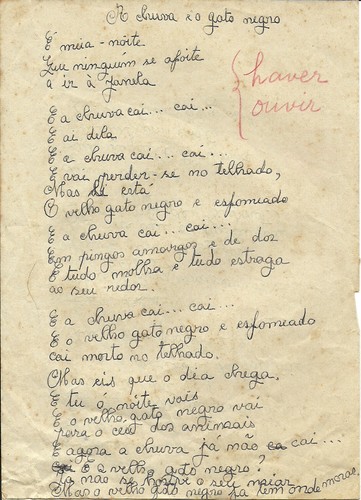 A chuva e o gato negro
É meia-noite
Que ninguém se afoite
a ir à janela
haver
ouvir
E a chuva cai... cai...
E ai dela
E a chuva cai... cai...
E vai perder-se no telhado,
Mas lá está
O velho gato negro e esfomeado
E a chuva cai... cai...
Em pingos amargos e de dor
E tudo molha e tudo estraga
ao seu redor.
E a chuva cai... cai...
E o velho gato negro e esfomeado
cai morto no telhado.
Mas eis que o dia chega.
E tu ó noite vais
E o velho gato negro vai
para o céu dos animais
E agora a chuva já não cai...
E o velho gato negro?
Já não se houve o seu miar
Mas o velho gato negro já tem onde morar